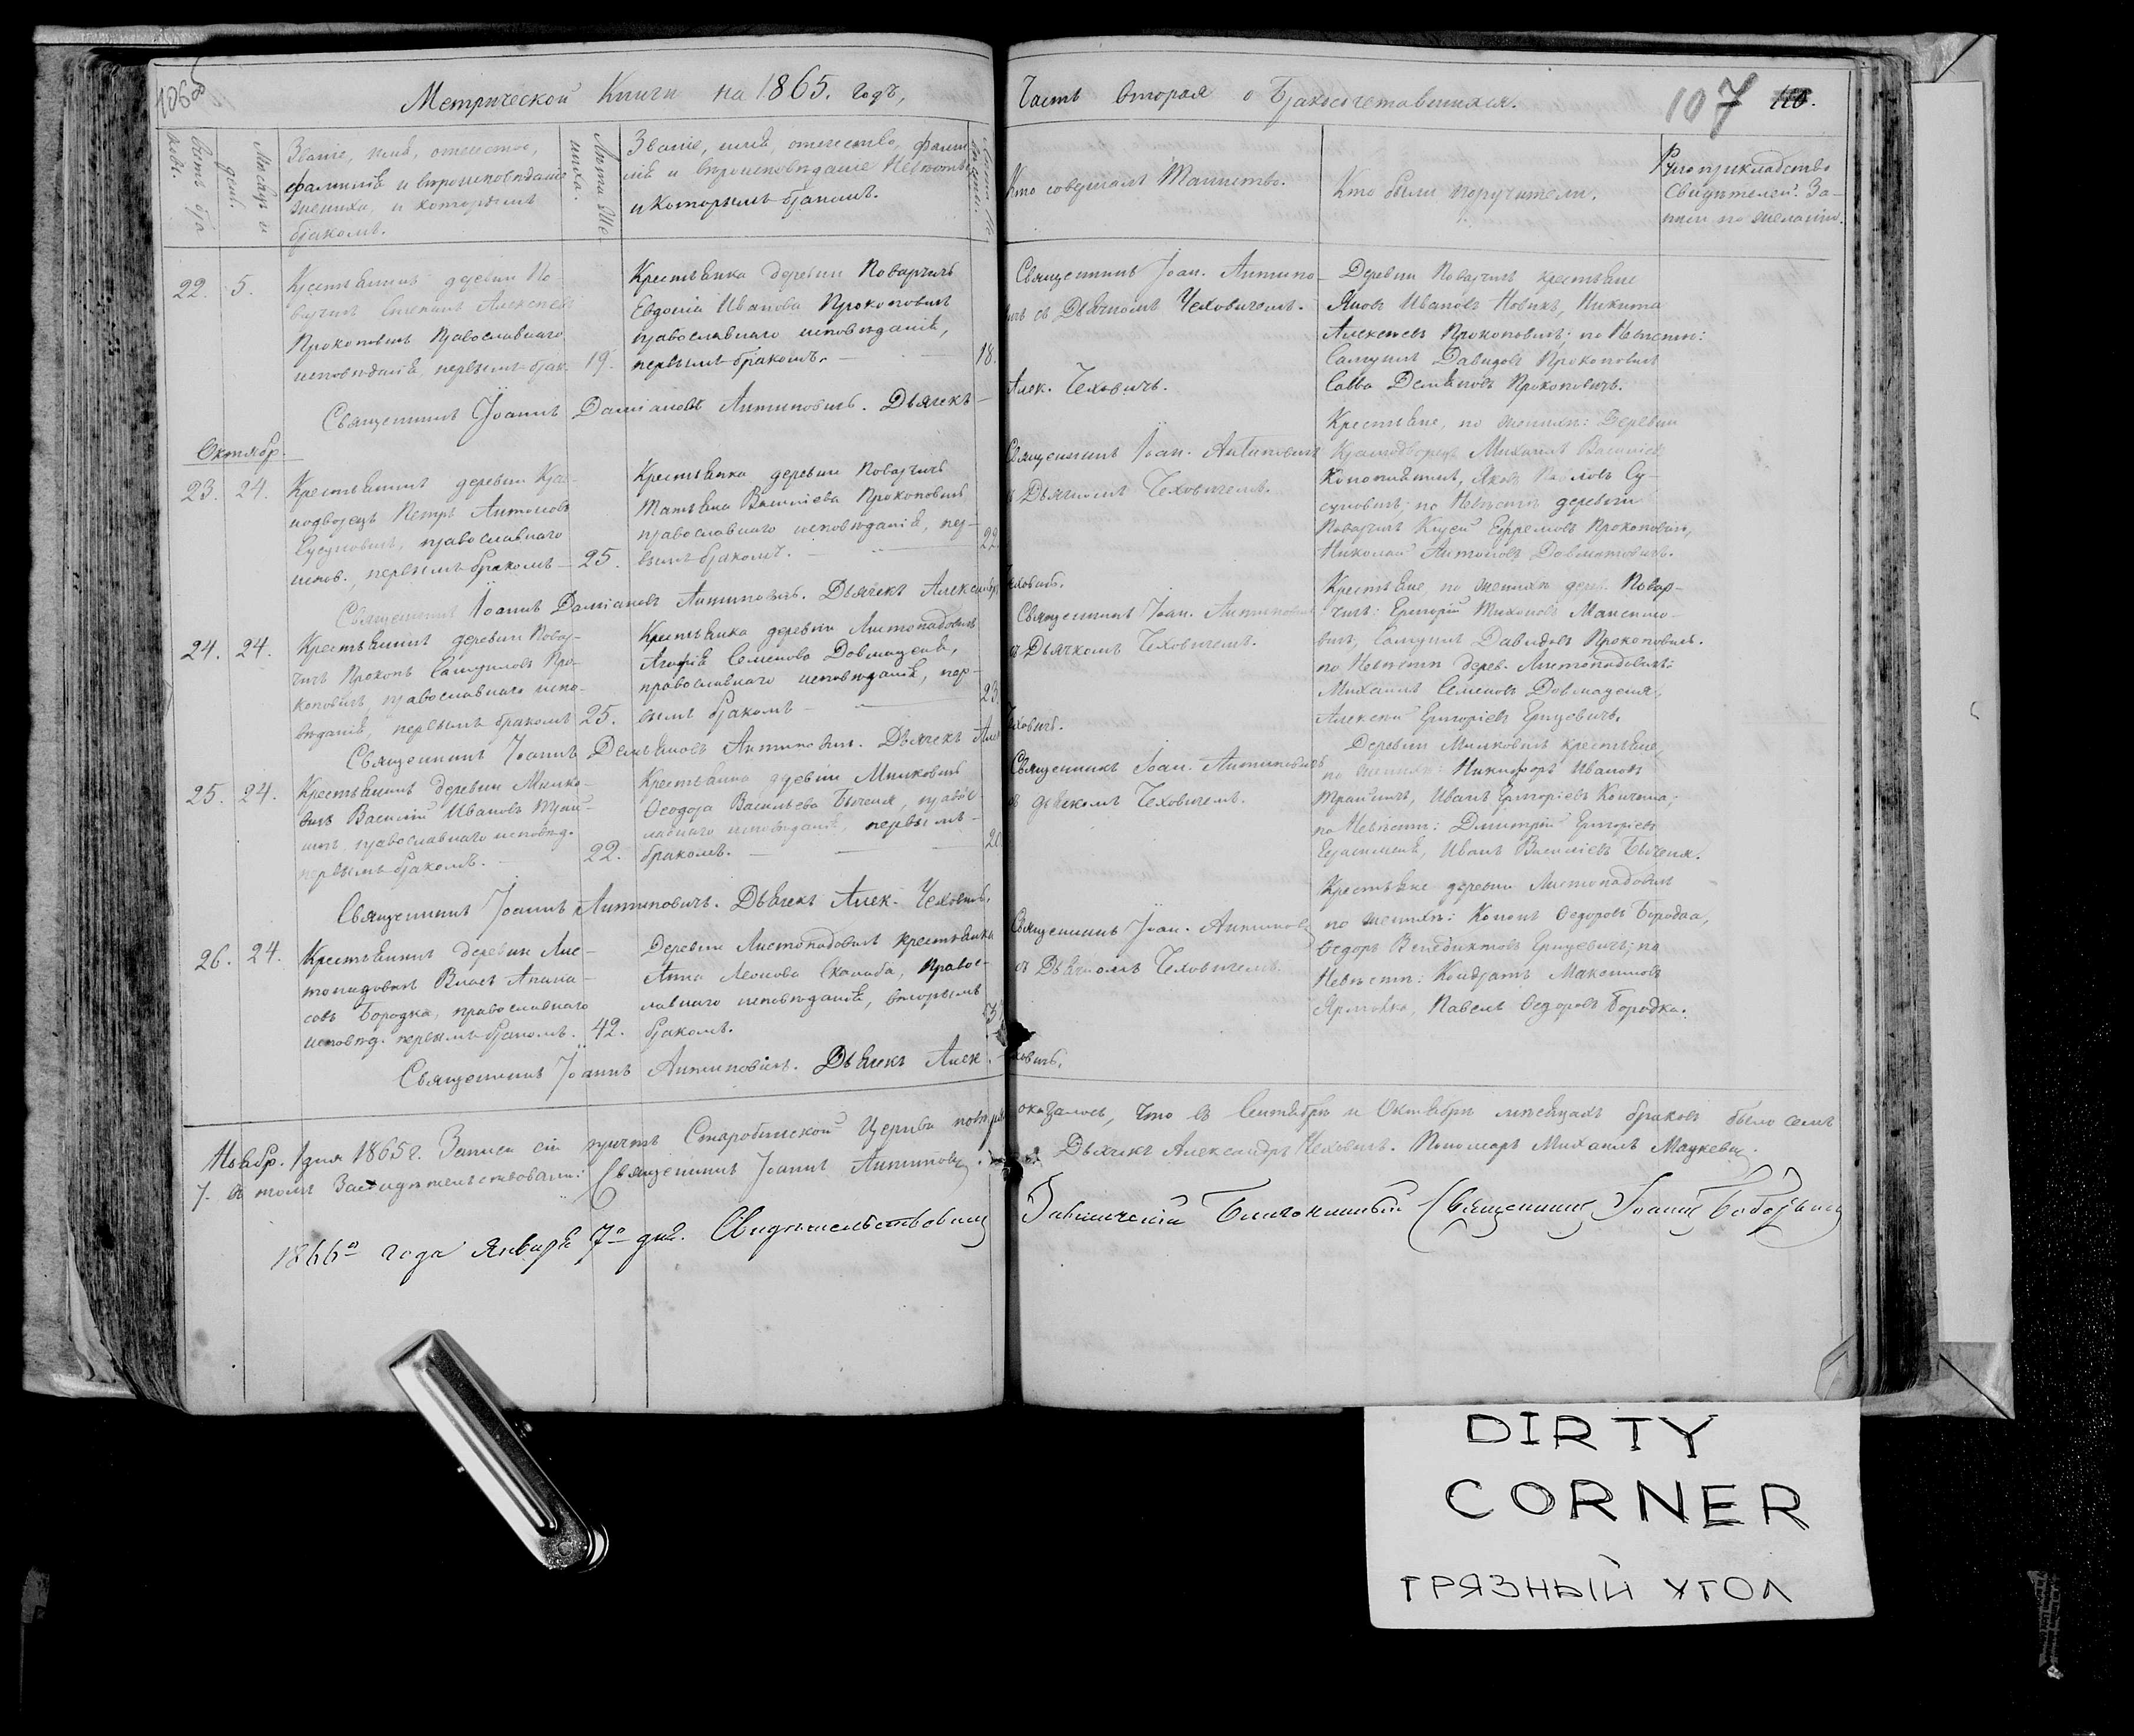 Метрической Книги на 1865. годъ,
Часть вторая о бракосочетавшихся.
107
Мѣсяцъ и день.
Званіе, имя, отечество,
фамилія и вѣроисповѣданіе
жениха, и которымъ
бракомъ.
Лѣта жениха.
Званіе, имя, отечество, фамилія
и вѣроисповѣданіе Невѣсты
и которымъ бракомъ.
Кто совершалъ Таинство.
Кто были поручители.
Рукоприкладство
Свидѣтелей За-
писи по желанію.
22. 5.
Крестьянинъ деревни По-
варчичъ Степанъ Алексѣевъ
Прокоповичъ православнаго
исповѣданія, первымъ брак. 19.
Крестьянка деревни Поварчичъ
Евдокія Иванова Прокоповичъ
православнаго исповѣданія,
первымъ бракомъ. 18.
Священникъ Іоан. Антипо-
вичъ съ Дьячкомъ Чеховичемъ.
Деревни Поварчичъ крестьяне
Яковъ Ивановъ Новикъ, Никита
Алексѣевъ Прокоповичъ; по Невѣстѣ:
Самуилъ Давидовъ Прокоповичъ
Савва Демьяновъ Прокоповичъ.
Священникъ Іоаннъ Даміановъ Антиповичъ. Дьячекъ
Алек. Чеховичъ.
Октябр.
23. 24.
Крестьянинъ деревни Крас-
нодворецъ Петръ Антоновъ
Сусуновичъ, православнаго
испов., первымъ бракомъ 25.
Крестьянка деревни Поварчичъ
Татьяна Василіева Прокоповичъ
православнаго исповѣданія, пер-
вымъ бракомъ. 22.
Священникъ Іоан. Антиповичъ
съ Дьячкомъ Чеховичемъ.
Крестьяне, по женихѣ: Деревни
Краснодворецъ Михаилъ Василіевъ
Яковъ Павловъ Су-
суновичъ; по Невѣстѣ деревни
Поварчичъ Ефремовъ Прокоповичъ,
Николай Антоновъ Довматовичъ.
Священникъ Іоаннъ Даміановъ Антиповичъ. Дьячекъ Александръ
Чеховичъ.
24. 24.
Крестьянинъ деревни Повар-
чичъ Прокопъ Самуиловъ Про-
коповичъ, православнаго испо-
вѣданія, первымъ бракомъ 25.
Крестьянка деревни Листопадовичъ
Агафія Семенова Довмаценя,
православнаго исповѣданія, пер-
вымъ бракомъ 23.
Священникъ Іоан. Антиповичъ
съ Дьячкомъ Чеховичемъ.
Крестьяне, по женихѣ дерев. Повар-
чичъ: Григорій Тихоновъ Максимо-
вичъ, Самуилъ Давидовъ Прокоповичъ.
по Невѣстѣ дерев. Листопадовичъ:
Михаилъ Семеновъ Довмаценя,
Алексѣй Григоріевъ Грицевичъ.
Священникъ Іоаннъ Демьяновъ Антиповичъ. Дьячекъ Алек
Чеховичъ.
25. 24.
Крестьянинъ деревни Милко-
вичъ Василій Ивановъ
православнаго исповѣд.
первымъ бракомъ. 22.
Крестьянка деревни Милковичъ
Ѳеодора Васильева Быченя, правос-
лавнаго исповѣданія, первымъ
бракомъ. 20.
Священникъ Іоан. Антиповичъ
съ дьячкомъ Чеховичемъ.
Деревни Милковичъ крестьяне,
по женихѣ: Никифоръ Ивановъ
Иванъ Григоріевъ
по Невѣстѣ: Дмитрій Григоріевъ
Герасименя, Иванъ Василіевъ Быченя.
Священникъ Іоаннъ Антиповичъ. Дьячекъ Алек. Чеховичъ.
26. 24.
Крестьянинъ деревни Лис-
топадовичъ Власъ Апана-
совъ Бородка, православнаго
исповѣд. первымъ бракомъ. 42.
Деревни Листопадовичъ крестьянка
Анна Леонова Скалаба, Правос-
лавнаго исповѣданія, вторымъ
бракомъ.
Священникъ Іоан. Антиповичъ
съ Дьячкомъ Чеховичемъ.
Крестьяне деревни Листопадовичъ
по женихѣ: Кононъ Ѳедоровъ Бородка,
Ѳедоръ Венедиктовъ Грицевичъ; по
Невѣстѣ: Кондратъ Максимовъ
Павелъ Ѳедоровъ Бородка.
Священникъ Іоаннъ Антиповичъ. Дьячекъ Алек. Чеховичъ.
Ноябр. 1 дня 1865 г. Записи сіи причтъ Старобинской Церкви повѣрялъ оказалось, что въ Сентябрѣ и Октябрѣ мѣсяцахъ браковъ было семь
7. въ томъ Засвидѣтельствовали: Священникъ Іоаннъ Антиповичъ. Дьячекъ Александръ Чеховичъ. Пономарь Михаилъ Мацкевичъ.
1866го года Января 7го дня. Свидѣтельствовалъ Благочинный Священникъ Іоаннъ
DIRTY
CORNER
ГРЯЗНЫЙ УГОЛ